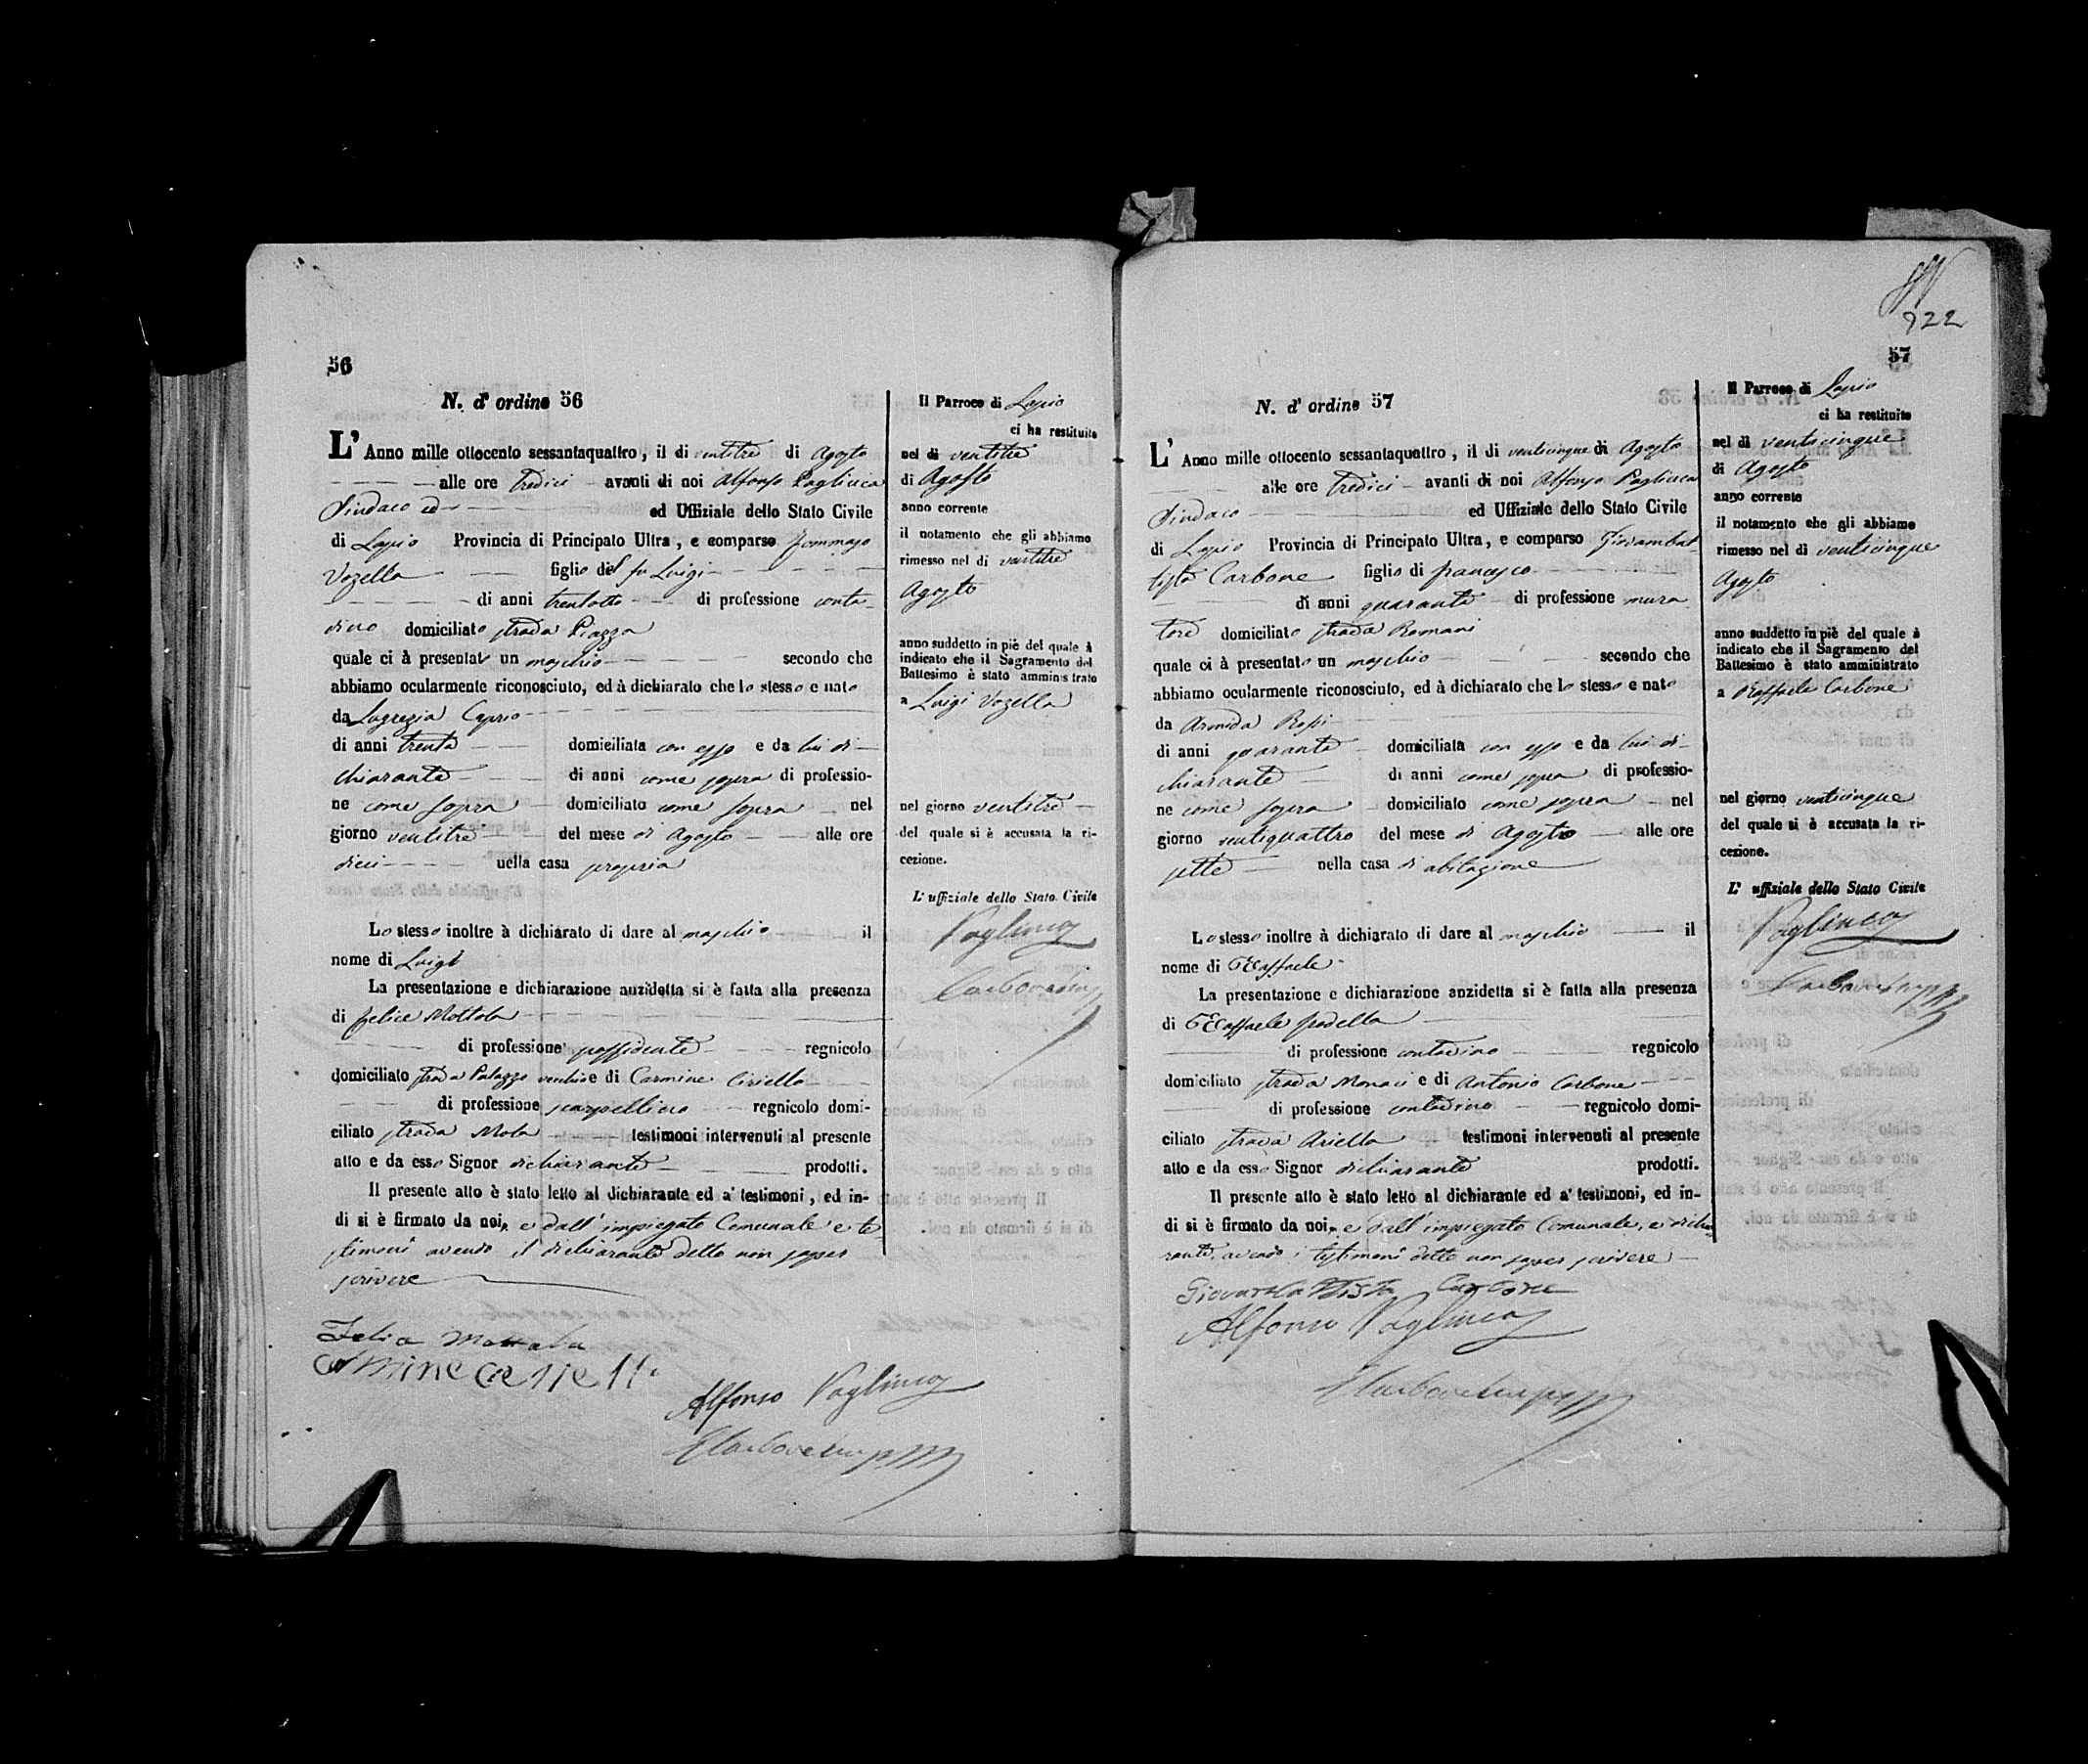 56
N. d' ordine 56
L' Anno mille ottocento sessantaquattro, il di ventitre di Agosto
alle ore tredici avanti di noi Alfonso Pagliuca
Sindaco ed ed Uffiziale dello Stato Civile
di Lapio Provincia di Principato Ultra, e comparso Tommaso
Vozella figlio del fu Luigi
di anni trentotto di professione conta-
dino domiciliato strada Piazza
quale ci à presentato un maschio secondo che
abbiamo ocularmente riconosciuto, ed à dichiarato che lo stesso e nato
da Lugrezia Caprio
di anni trenta domiciliata con esso e da lui di-
chiarante di anni come sopra di professio-
ne come sopra domiciliato come sopra nel
giorno ventitre del mese di Agosto alle ore
dieci nella casa propria
Lo stesso inoltre à dichiarato di dare al maschio il
nome di Luigi
La presentazione e dichiarazione anzidetta si è fatta alla presenza
di Felice Mottola
di professione possidente regnicolo
domiciliato strada Palazzo vecchio e di Carmine Ciriello
di professione scarpellino regnicolo domi-
ciliato strada Mola testimoni intervenuti al presente
atto e da esso Signor dichiarante prodotti.
Il presente atto è stato letto al dichiarante ed a' testimoni, ed in-
di si è firmato da noi, e dall' impiegato Comunale e te
stimoni avendo il dichiarante detto non saper
scrivere
Felice Mottola
Alfonso Pagliuca
Il Parroco di Lapio
ci ha restituito
nel di ventitre
di Agosto
anno corrente
il notamento che gli abbiamo
rimesso nel di ventitre
Agosto
anno suddetto in piè del quale à
indicato che il Sagramento del
Battesimo è stato amministrato
a Luigi Vozella
nel giorno ventitre
del quale si è accusata la ri-
cezione.
L' uffiziale dello Stato Civile
Pagliuca
922
57
N. d' ordine 57
L' Anno mille ottocento sessantaquattro, il di venticinque di Agosto
alle ore tredici avanti di noi Alfonso Pagliuca
Sindaco ed Uffiziale dello Stato Civile
di Lapio Provincia di Principato Ultra, e comparso Giovambat-
tista Carbone figlio di Francesco
di anni quaranta di professione mura
tore domiciliato strada Romani
quale ci à presentato un maschio secondo che
abbiamo ocularmente riconosciuto, ed à dichiarato che lo stesso e nato
da Armida Rossi
di anni quaranta domiciliata con esso e da lui di-
chiarante di anni come sopra di professio-
ne come sopra domiciliato come sopra nel
giorno ventiquattro del mese di Agosto alle ore
sette nella casa di abitazione
Lo stesso inoltre à dichiarato di dare al maschio il
nome di Raffaele
La presentazione e dichiarazione anzidetta si è fatta alla presenza
di Raffaele
di professione contadino regnicolo
domiciliato strada Monaci e di Antonio Carbone
di professione contadino regnicolo domi-
ciliato strada Ariella testimoni intervenuti al presente
atto e da esso Signor dichiarante prodotti.
Il presente atto è stato letto al dichiarante ed a' testimoni, ed in-
di si è firmato da noi, e dall' impiegato Comunale, e dichia
rante, avendo i testimoni detto non saper scrivere
Giovanbattista Carbone
Alfonso Pagliuca
Il Parroco di Lapio
ci ha restituito
nel di venticinque
di Agosto
anno corrente
il notamento che gli abbiamo
rimesso nel di venticinque
Agosto
anno suddetto in piè del quale à
indicato che il Sagramento del
Battesimo è stato amministrato
a Raffaele Carbone
nel giorno venticinque
del quale si è accusata la ri-
cezione.
L' uffiziale dello Stato Civile
Pagliuca